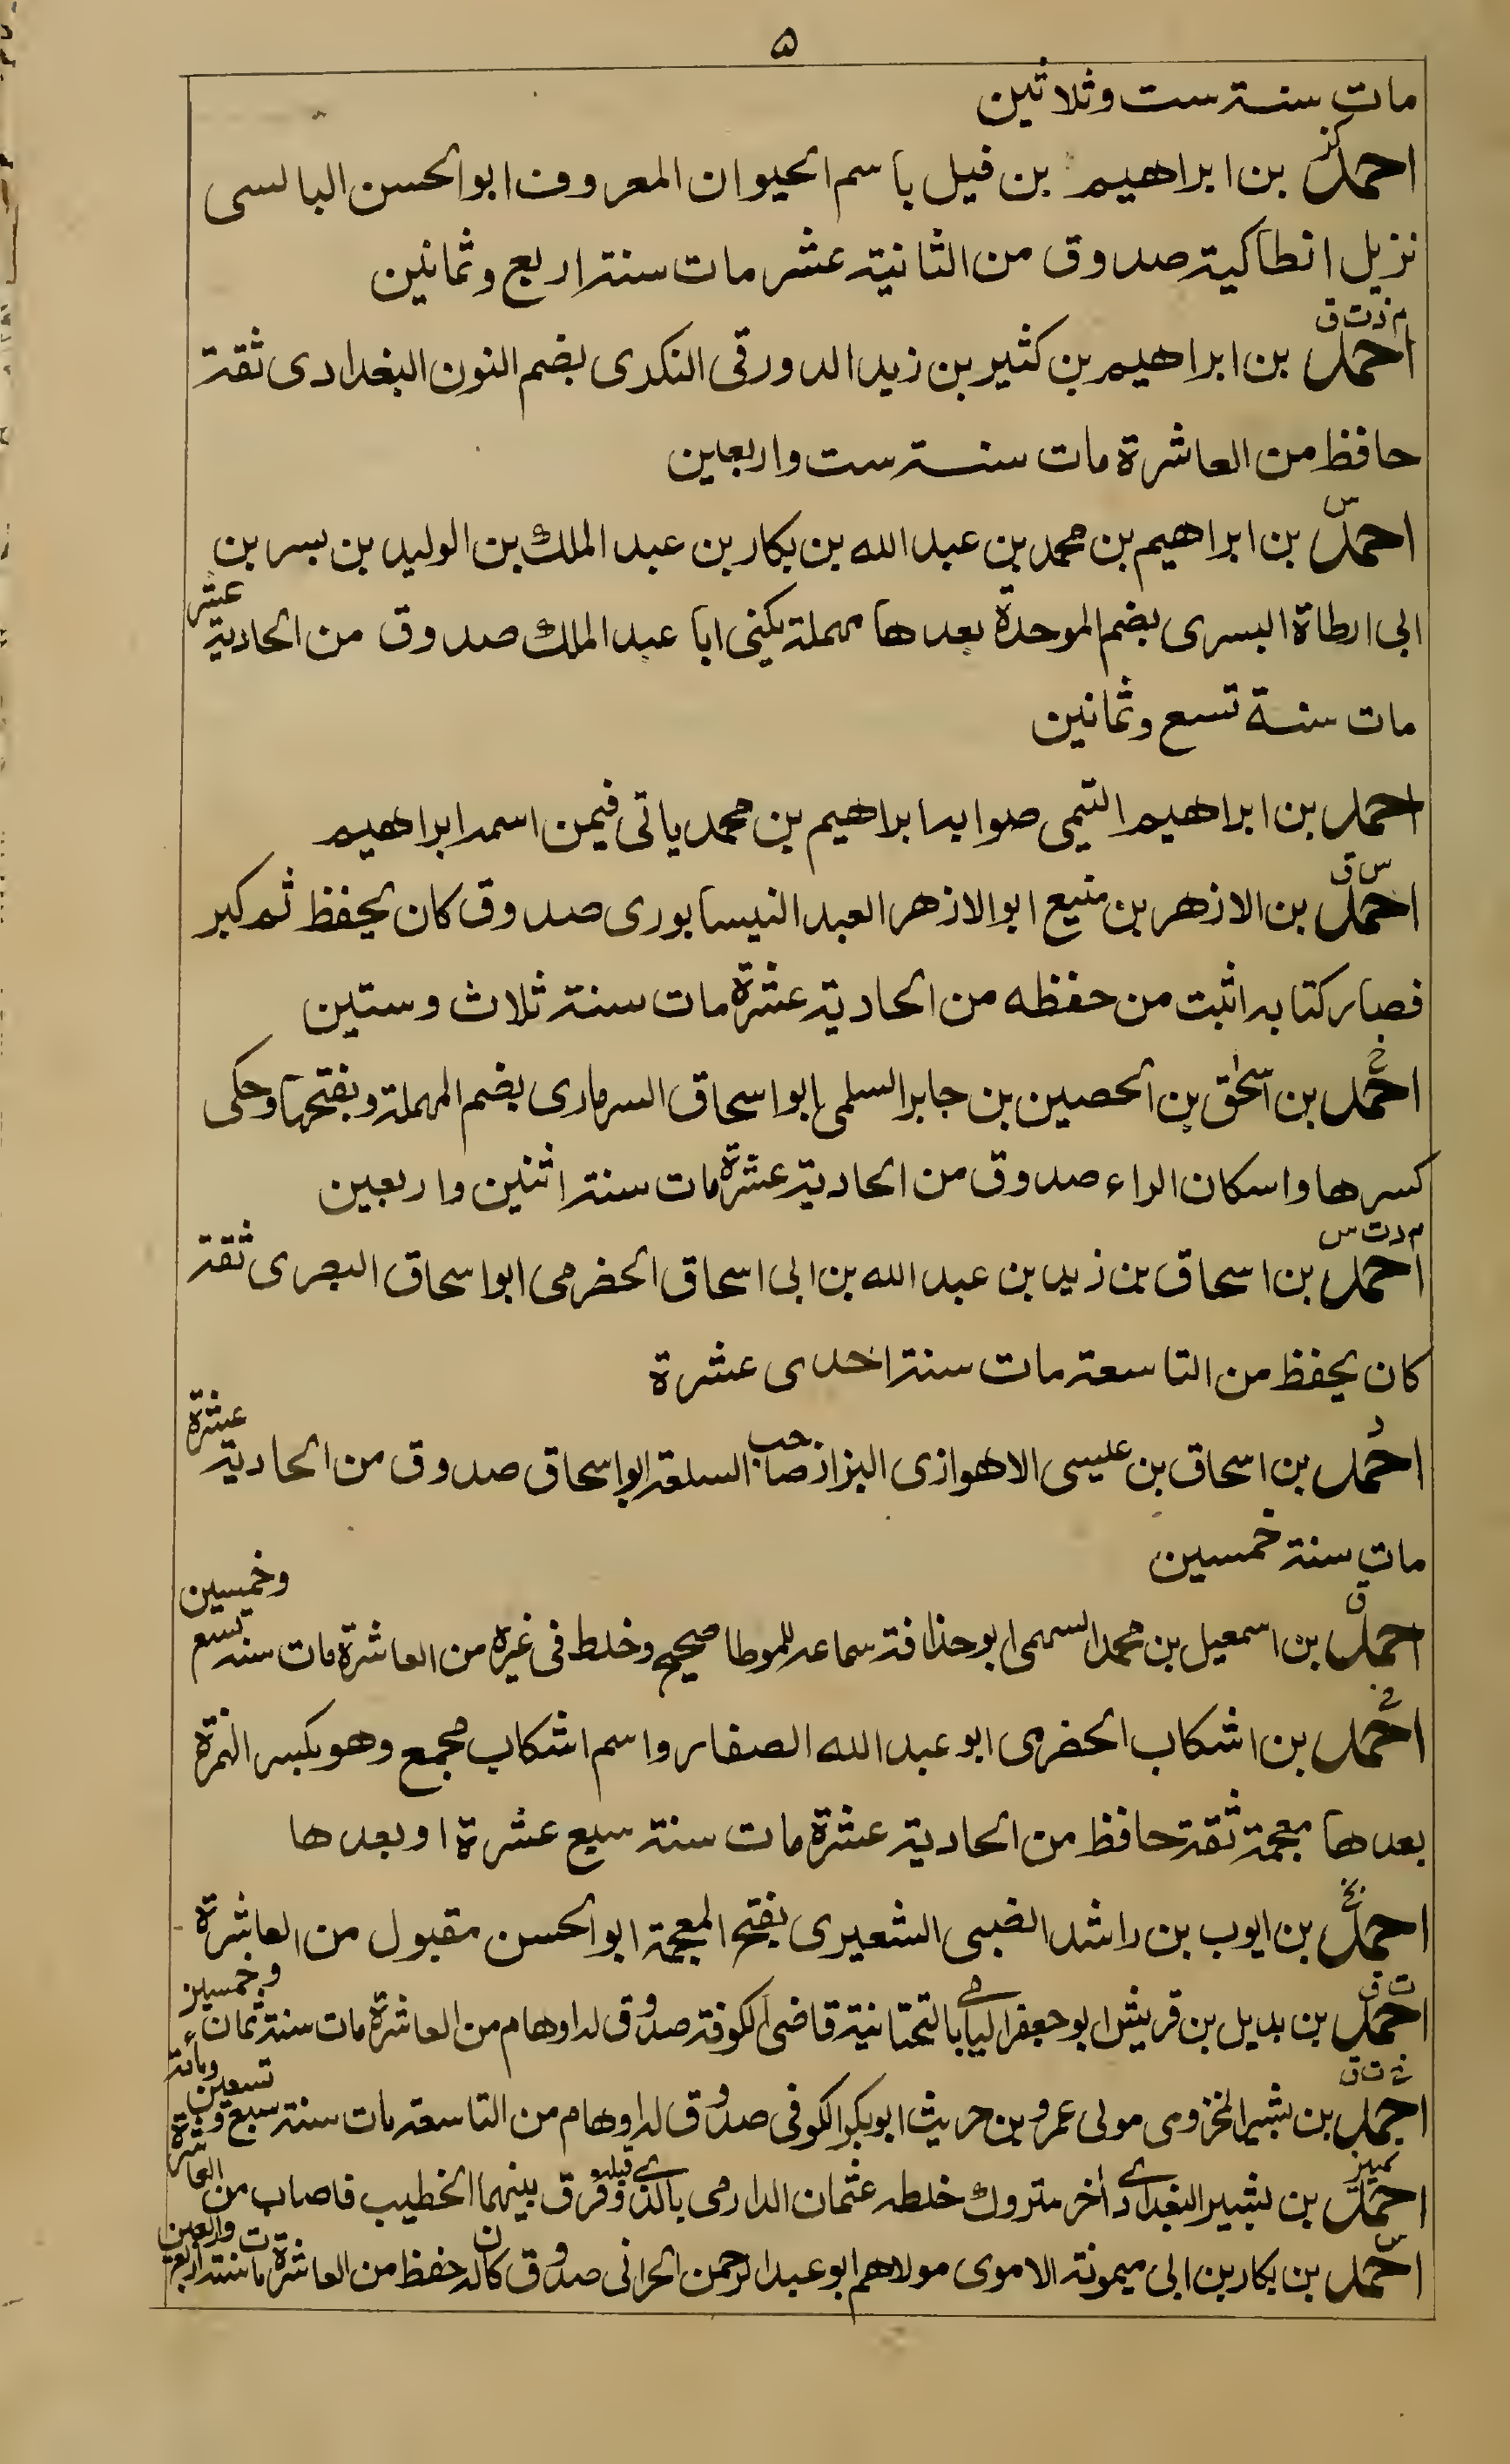 ۵
مات سنة ست وثلاثين
كن
احمد بن ابراهيم بن فيل باسم الحيوان المعروف ابو الحسن البالسى
نزيل انطاكية صدوق من الثانية عشر مات سنة اربع وثمانين
م د ت ق
احمد بن ابراهيم بن كثير بن زيد الدورقى النكرى بضم النون البغدادى ثقة
حافظ من العاشرة مات سنة ست واربعين
س
احمد بن ابراهيم بن محمد بن عبد الله بن بكار بن عبد الملك بن الوليد بن بسر بن
ابى ارطاة البسرى بضم الموحدة بعدها مهملة يكنى ابا عبد الملك صدوق من الحادية عشر
مات سنة تسع وثمانين
احمد بن ابراهيم التيمى صوابه ابراهيم بن محمد ياتى فيمن اسمه ابراهيم
س ق
احمد بن الازهر بن منيع ابو الازهر العبد النيسابورى صدوق كان يحفظ ثم كبر
فصار كتابه اثبت من حفظه من الحادية عشرة مات سنة ثلاث وستين
خ
احمد بن اسحٰق بن الحصين بن جابر السلمى ابو اسحاق السرمارى بضم المهملة وبفتحها وحكى
كسرها واسكان الراء صدوق من الحادية عشرة مات سنة اثنين واربعين
م د ت س
احمد بن اسحاق بن زيد بن عبد الله بن ابى اسحاق الحضرمى ابو اسحاق البصرى ثقة
كان يحفظ من التاسعة مات سنة احدى عشرة
د
احمد بن اسحاق بن عيسى الاهوازى البزاز صاحب السلعة ابو اسحاق صدوق من الحادية عشرة
مات سنة خمسين
ق
احمد بن اسمعيل بن محمد السهمى ابو حذافة سماعه للموطا صحيح وخلط فى غيره من العاشرة مات سنة تسع وخمسين
خ
احمد بن اشكاب الحضرمى ابو عبد الله الصفار واسم اشكاب مجمع وهو بكسر الهمزة
بعدها معجمة ثقة حافظ من الحادية عشرة مات سنة سبع عشرة او بعدها
بخ
احمد بن ايوب بن راشد الضبى الشعيرى بفتح المعجمة ابو الحسن مقبول من العاشرة
ت ق
احمد بن بديل بن قريش ابو جعفر اليامى بالتحتانية قاضى الكوفة صدوق له اوهام من العاشرة مات سنة ثمان وخمسين
خ ت ق
احمد بن بشير المخزومى مولى عمرو بن حريث ابو بكر الكوفى صدوق له اوهام من التاسعة مات سنة سبع وتسعين ومائة
تمييز
احمد بن بشير البغدادى اٰخر متروك خلطه عثمان الدارمى بالذى قبله وفرق بينهما الخطيب فاصاب من العاشرة
س
احمد بن بكار بن ابى ميمونة الاموى مولاهم ابو عبد الرحمن الحرانى صدوق كان له حفظ من العاشرة مات سنة اربع واربعين